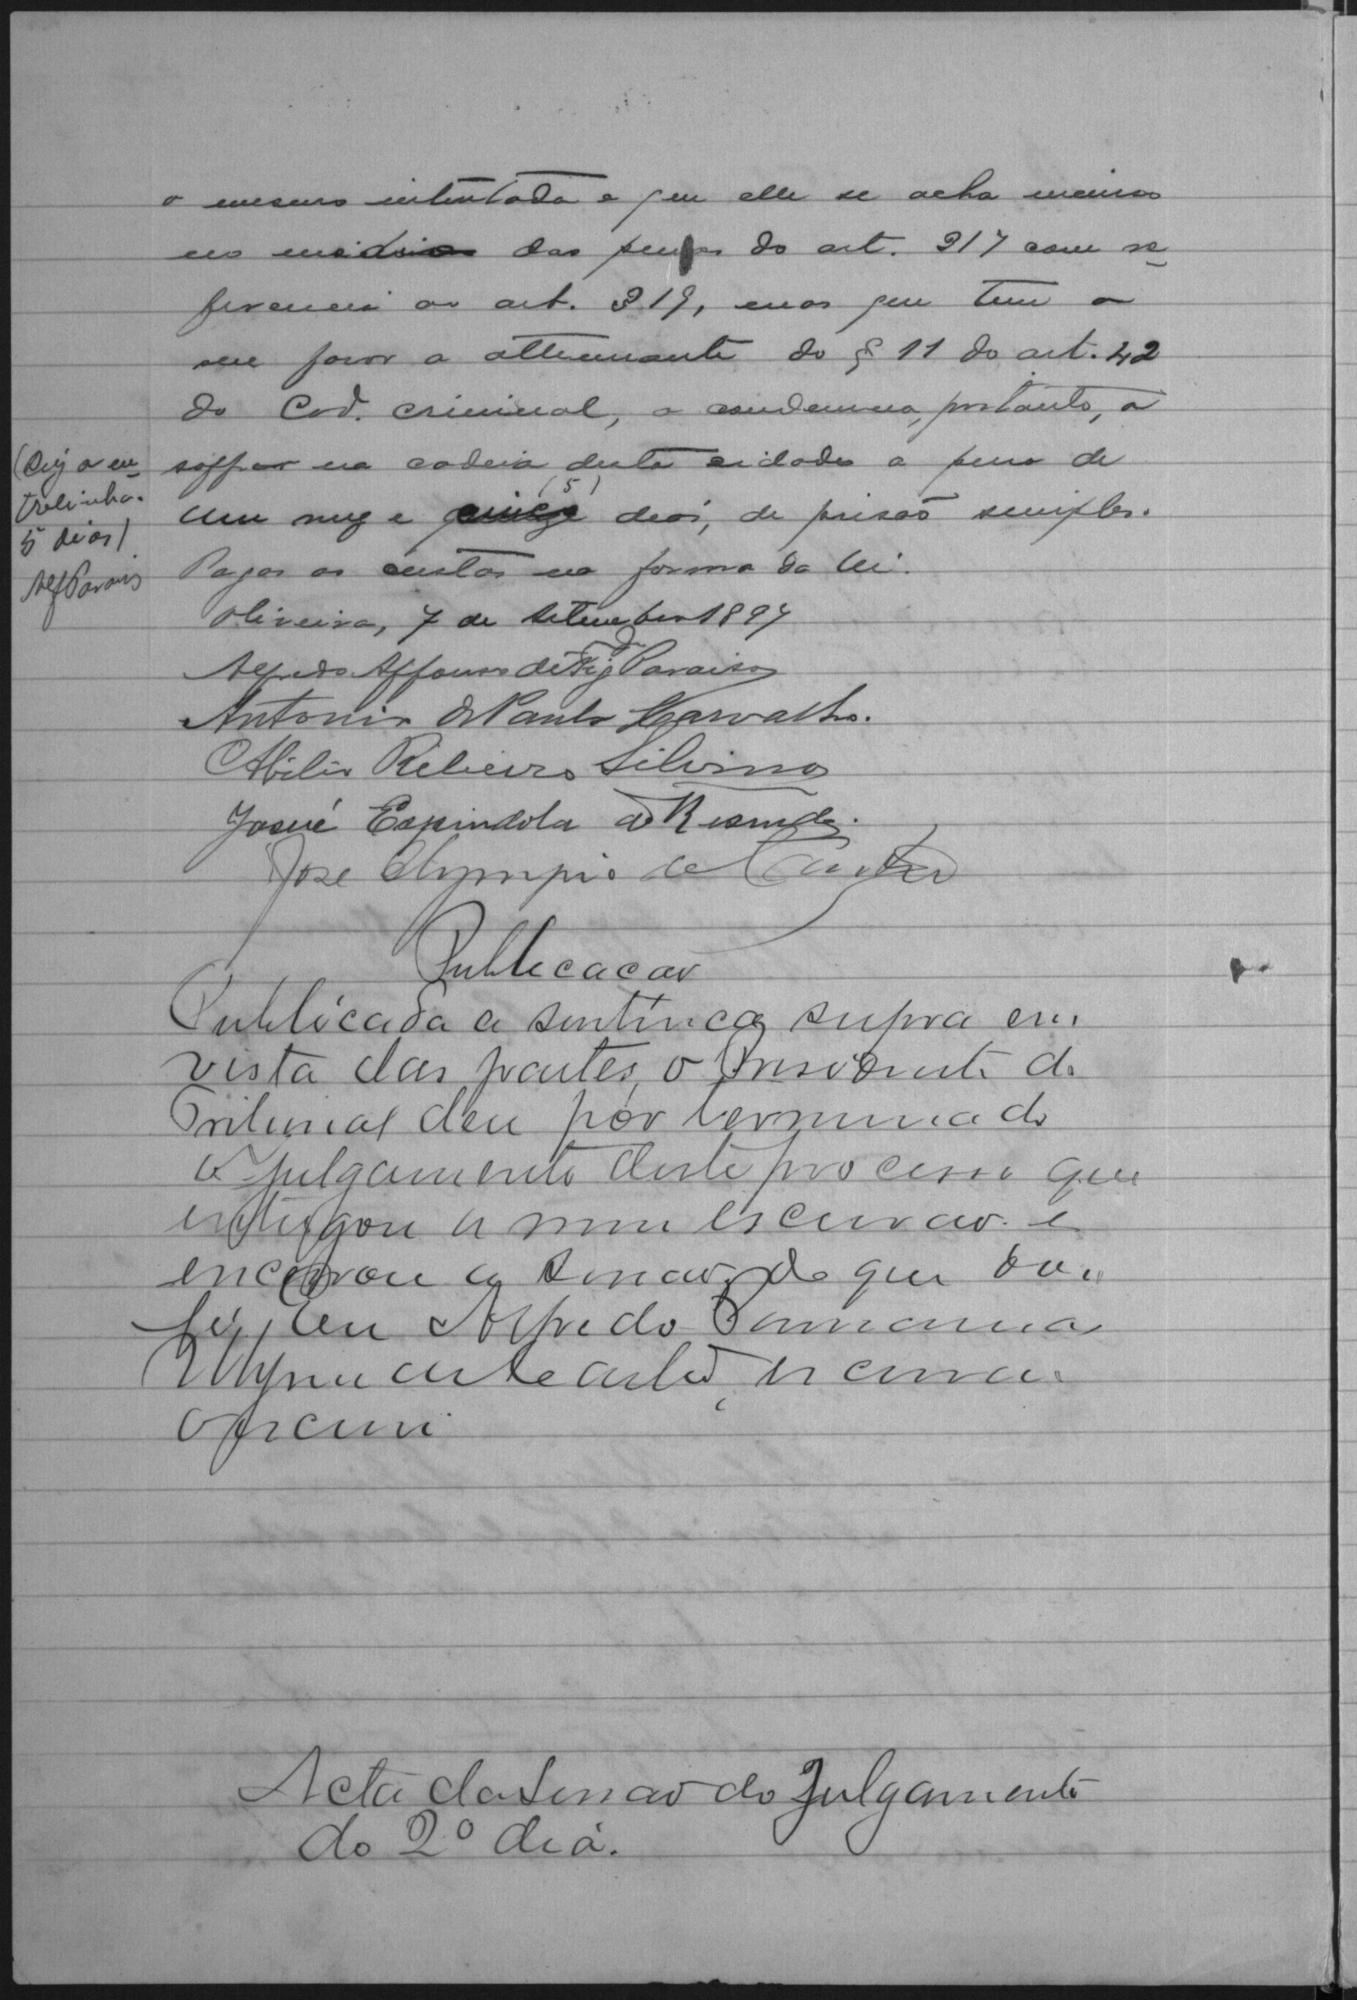 o mesmo intentada e que elle se acha incurso
no medio das penas do art. 317 com re-
ferencia ao art. 319, mas que tem a
seu favor a attenuante do § 11 do art. 42
do Cod. criminal, o condemna, portanto, a
soffrer na cadeia desta cidade a pena de
um mez e quinze (5) dias, de prisão simples.
(Diz a en-
trelinha.
5 dias)
Alf Paraiso
Pagas as custas na forma da lei.
Oliveira, 7 de Setembro 1897
Alfredo Affonso de Figdo Paraiso
Antonio de Paula Carvalho.
Abilio Ribeiro Silvino
Josué Espindola de Resende.
José Olympio de Castro
Publicacao
Publicada a sentinca supra em
vista das partes, o Presidente do
Tribunal deu por terminado
o julgamento deste processo que
entregou a mim escrivao e
encerrou a sessao, do que dou
fé, Eu Alfredo
escrivao
o escrevi
Acta da Sessao do Julgamento
do 2º dia.